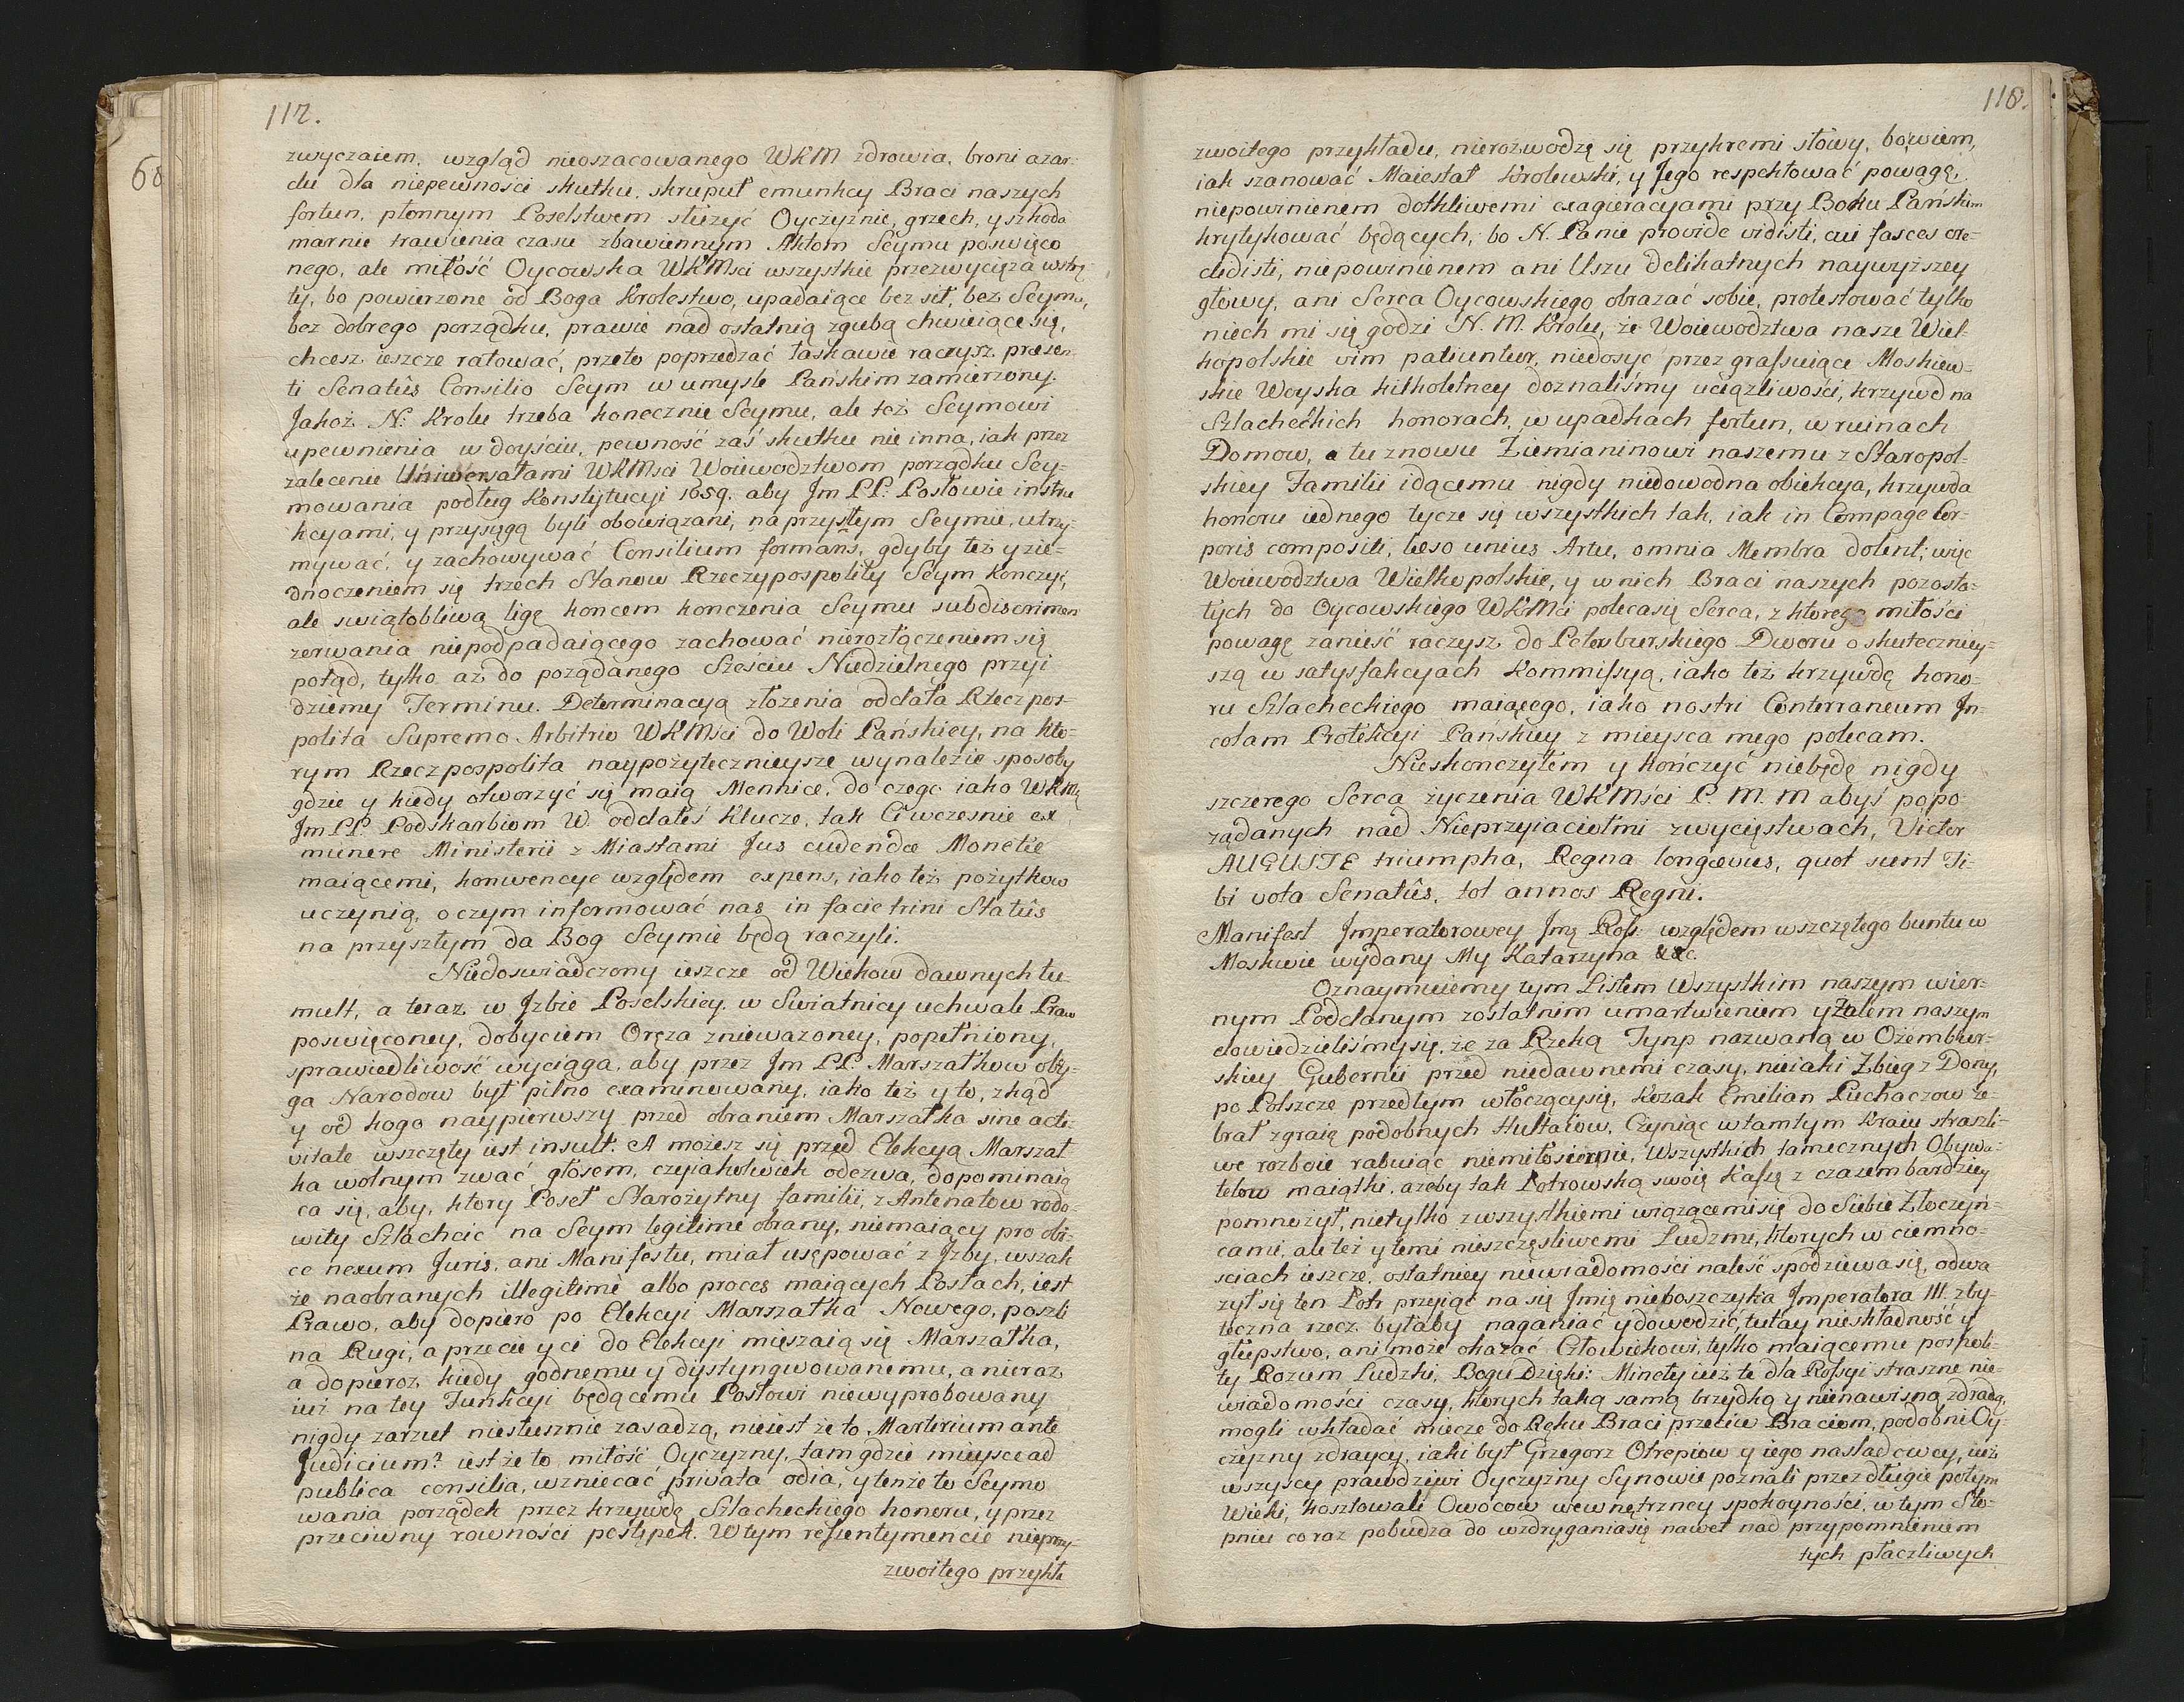 112.
68
zwyczaiem, wzgląd nieoszacowanego WKM zdrowia, broni azar-
du dla niepewności skutku, skrupuł emunkcy Braci naszych
fortun, płonnym Poselstwem służyć Oyczyźnie, grzech, y szkoda
marnie trawienia czasu zbawiennym Aktom Seymu poswięco
nego, ale miłość Oycowska WKMsci wszystkie przezwycięża wstrę-
ty, bo powierzone od Boga Krolestwo, upadaiące bez sił, bez Seymu,
bez dobrego porządku, prawie nad ostatnią zgubą chwieiące się,
chcesz ieszcze ratować, przeto poprzedzać łaskawie raczysz præsen-
ti Senatûs Consilio Seym w umysle Pańskim zamierzony.
Jakoż N: Krolu trzeba koniecznie Seymu, ale też Seymowi
upewnienia w doyściu, pewność zaś skutku nie inna, iak przez
zalecenie Uniwersałami WKMsci Woiewodztwom porządku Sey-
mowania podług Konstytucyi 1659. aby Jm PP: Posłowie instru
kcyami, y przysięgą byli obowiązani, na przyszłym Seymie, utrzy-
mywać, y zachowywać Consilium formans, gdyby też y zie-
dnoczeniem się trzech Stanow Rzeczypospolity Seym konczyć,
ale swiątobliwą ligę końcem konczenia Seymu sub discrimen
zerwania niepodpadaiącego zachować nierozłączeniem się
potąd, tylko aż do pożądanego Sześciu Niedzielnego przyi
dziemy Terminu. Determinacyą złożenia oddała Rzeczpos-
polita Supremo Arbitrio WKMsci do Woli Pańskiey, na kto-
rym Rzeczpospolita naypożytecznieysze wynalezie sposoby
gdzie y kiedy otworzyć się maią Mennice, do czego iako WKMć
Jm PP. Podskarbiom W. oddałeś Klucze, tak Ci wczesnie ex
munere Ministerii z Miastami Jus cudendæ Monetæ
maiącemi, konwencye względem expens, iako też pożytkow
uczynią, o czym informować nas in facie trini Statûs
na przyszłym da Bog Seymie będą raczyli.
Niedoswiadczony ieszcze od Wiekow dawnych tu-
mult, a teraz w Jzbie Poselskiey, w Swiatnicy uchwale Praw
poswięconey, dobyciem Oręża znieważoney, popełniony,
sprawiedliwość wyciąga, aby przez Jm PP. Marszałkow oby-
ga Narodow był pilno examinowany, iako też y to, zkąd
y od kogo naypierwszy przed obraniem Marszałka sine acti-
vitate wszczęty iest insult. A możesz się przed Elekcyą Marszał
ka wolnym zwać głosem, czyiakolwiek odezwa, dopominaią
ca się, aby, ktory Poseł Starożytny familii, z Antenatow rodo-
wity Szlachcic na Seym legitime obrany, niemaiący pro obi-
ce nexum Juris, ani Manifestu, miał usępować z Jzby, wszak
że naobranych illegitimè albo proces maiących Posłach, iest
Prawo, aby dopiero po Elekcyi Marszałka Nowego, poszli
na Rugi, a przecie y ci do Elekcyi mięszaią się Marszałka,
a dopieroż kiedy godnemu y dystyngwowanemu, a nieraz
iuż na tey Funkcyi będącemu Posłowi niewyprobowany
nigdy zarzut niesłusznie zasadzą, nieiest że to Martirium ante
Judicium? iest że to miłość Oyczyzny, tam gdzie mieysce ad
publica consilia, wzniecać privata odia, y tenże to Seymo
wania porządek przez krzywdę Szlacheckiego honoru, y przez
przeciwny rowności postępek. W tym resentymencie nieprzy-
zwoitego przykła
118.
zwoitego przykładu, nierozwodzę się przykremi słowy, bowiem,
iak szanować Maiestat Krolewski, y Jego respektować powagę,
niepowinienem dotkliwemi exagieracyami przy Boku Pańskim
krytykować będących, bo N. Panie provide vidisti, cui fasces cre-
didisti, niepowinienem ani Uszu delikatnych naywyższey
głowy, ani Serca Oycowskiego obrażać sobie, protestować tylko
niech mi się godzi N. M. Krolu, że Woiewodztwa nasze Wiel-
kopolskie vim patiuntur, niedosyć przez grassuiące Moskiew-
skie Woyska kilkoletney doznaliśmy uciążliwości, krzywd na
Szlacheckich honorach, w upadkach fortun, w ruinach
Domow, a tu znowu Ziemianinowi naszemu z Staropol-
skiey Familii idącemu nigdy niedowodna obiekcya, krzywda
honoru iednego tycze się wszystkich tak, iak in Compage Cor-
poris compositi, læso unius Artu, omnia Membra dolent; więc
Woiewodztwa Wielkopolskie, y w nich Braci naszych pozosta-
łych do Oycowskiego WKMci poleca się Serca, z ktorego miłości
powagę zanieść raczysz do Petersburskiego Dworu o skuteczniey-
szą w satysfakcyach Kommissyą, iako też krzywdę hono-
ru Szlacheckiego maiącego, iako nostri Conterraneum Jn-
colam Protekcyi Pańskiey z mieysca mego polecam.
Nieskonczyłem y kończyć niebędę nigdy
szczerego Serca życzenia WKMści P. M. M abyś popo-
żądanych nad Nieprzyiaciołmi zwycięstwach, Victor
AUGUSTE triumpha, Regna longævus, quot sunt Ti-
bi vota Senatûs, tot annos Regni.
Manifest Jmperatorowey Jmę Ross: względem wszczętego buntu w
Moskwie wydany My Katarzyna &&c.
Oznaymuiemy tym Listem Wszystkim naszym wier-
nym Poddanym zostatnim umartwieniem y Żalem naszym
dowiedzieliśmy się, że za Rzeką Tynp nazwaną w Ozembur-
skiey Gubernii przed niedawnemi czasy, nieiaki Zbieg z Dony,
po Polszcze przedtym włoczący się, Kozak Emilian Puchaczow ze-
brał zgraię podobnych Hultaiow, Czyniąc w tamtym Kraiu straszli-
we rozboie rabuiąc niemiłosiernie, Wszystkich tamecznych Obywa-
telow maiątki, ażeby tak Łotrowską swoię Kassę z czasem bardziey
pomnożył, nietylko z wszystkiemi wiążącemi się do Siebie Złoczyn-
cami, ale też y temi nieszczęsliwemi Ludzmi, ktorych w ciemno-
sciach ieszcze, ostatniey niewiadomości naleść spodziewa się, odwa
żył się ten Łotr przyiąć na się Jmię nieboszczyka Jmperatora III. zby-
teczna rzecz byłaby naganiać y dowodzić, tutay nieskładność y
głupstwo, ani może okazać Człowiekowi, tylko maiącemu pospoli-
ty Rozum Ludzki, Bogu Dzięki: Minęły iuż te dla Rossyi straszne nie-
wiadomości czasy, ktorych taką samą brzydką y nienawisną zdradą,
mogli wkładać miecze do Ręku Braci przeciw Braciom, podobni Oy-
czyzny zdraycy, iaki był Grzegorz Otrepiow y iego nasladowcy, iuż
wszyscy prawdziwi Oyczyzny Synowie poznali przez długie potym
Wieki, kosztowali Owocow wewnętrzney spokoyności, w tym Sto-
pniu co raz pobudza do wzdrygania się nawet nad przypomnieniem
tych płaczliwych